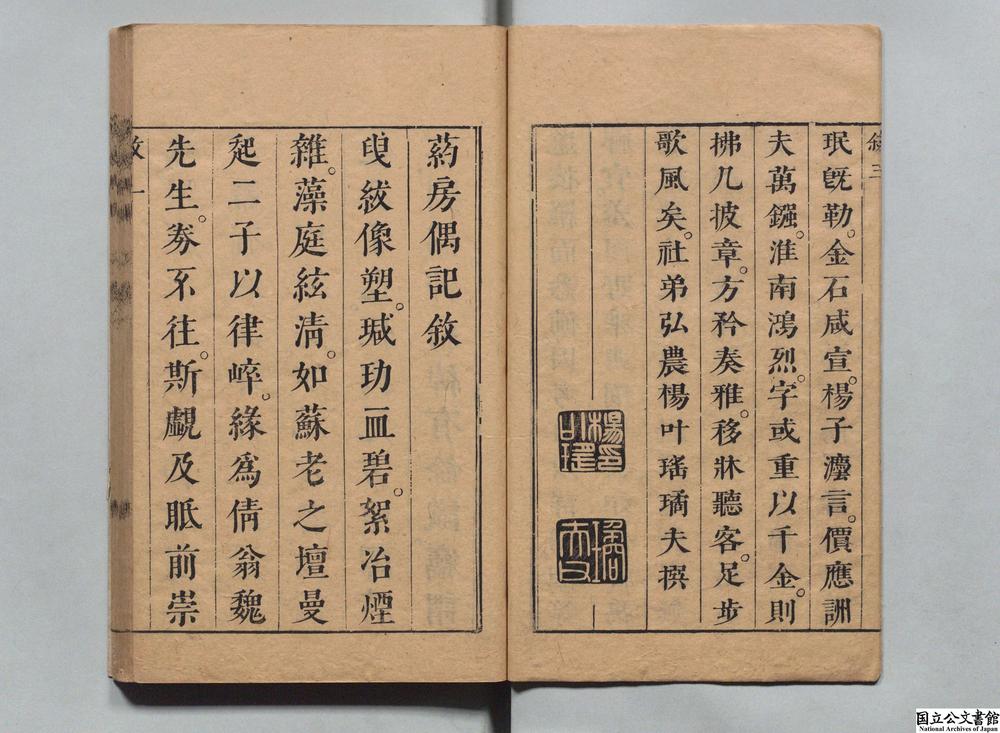 叙三
珉旣勒。金石咸宣。楊子瀍言。價應詶
夫萬鏹。淮南鴻烈。字或重以千金。則
拂几披章。方矜奏雅。移牀聽客。足步
歌風矣。社弟弘農楊叶瑤璚夫撰
葯房偶記敘
臾紱像塑。瑊玏皿碧。絮冶煙
雜。藻庭絃淸。如蘇老之壇曼
起二子以律崪。緣爲倩翁魏
先生劵不往。斯覿及眡前崇
敘一
国立公文書館
National Archives of Japan